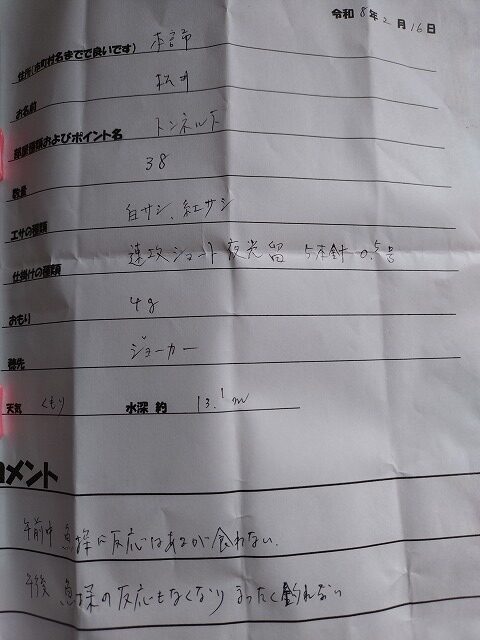 令和 8年 2月 16日
住所(市町村名までで良いです) 本宮市
お名前
部屋番号およびポイント名 トンネル下
数量 38
エサの種類 白サシ、紅サシ
仕掛けの種類 速攻ショート 夜光留 5本針 0.5号
おもり 4g
穂先 ジョーカー
天気 くもり 水深 約 13.1m
コメント
午前中 魚探に反応はあるが食わない.
午後 魚探の反応もなくなり まったく釣れない